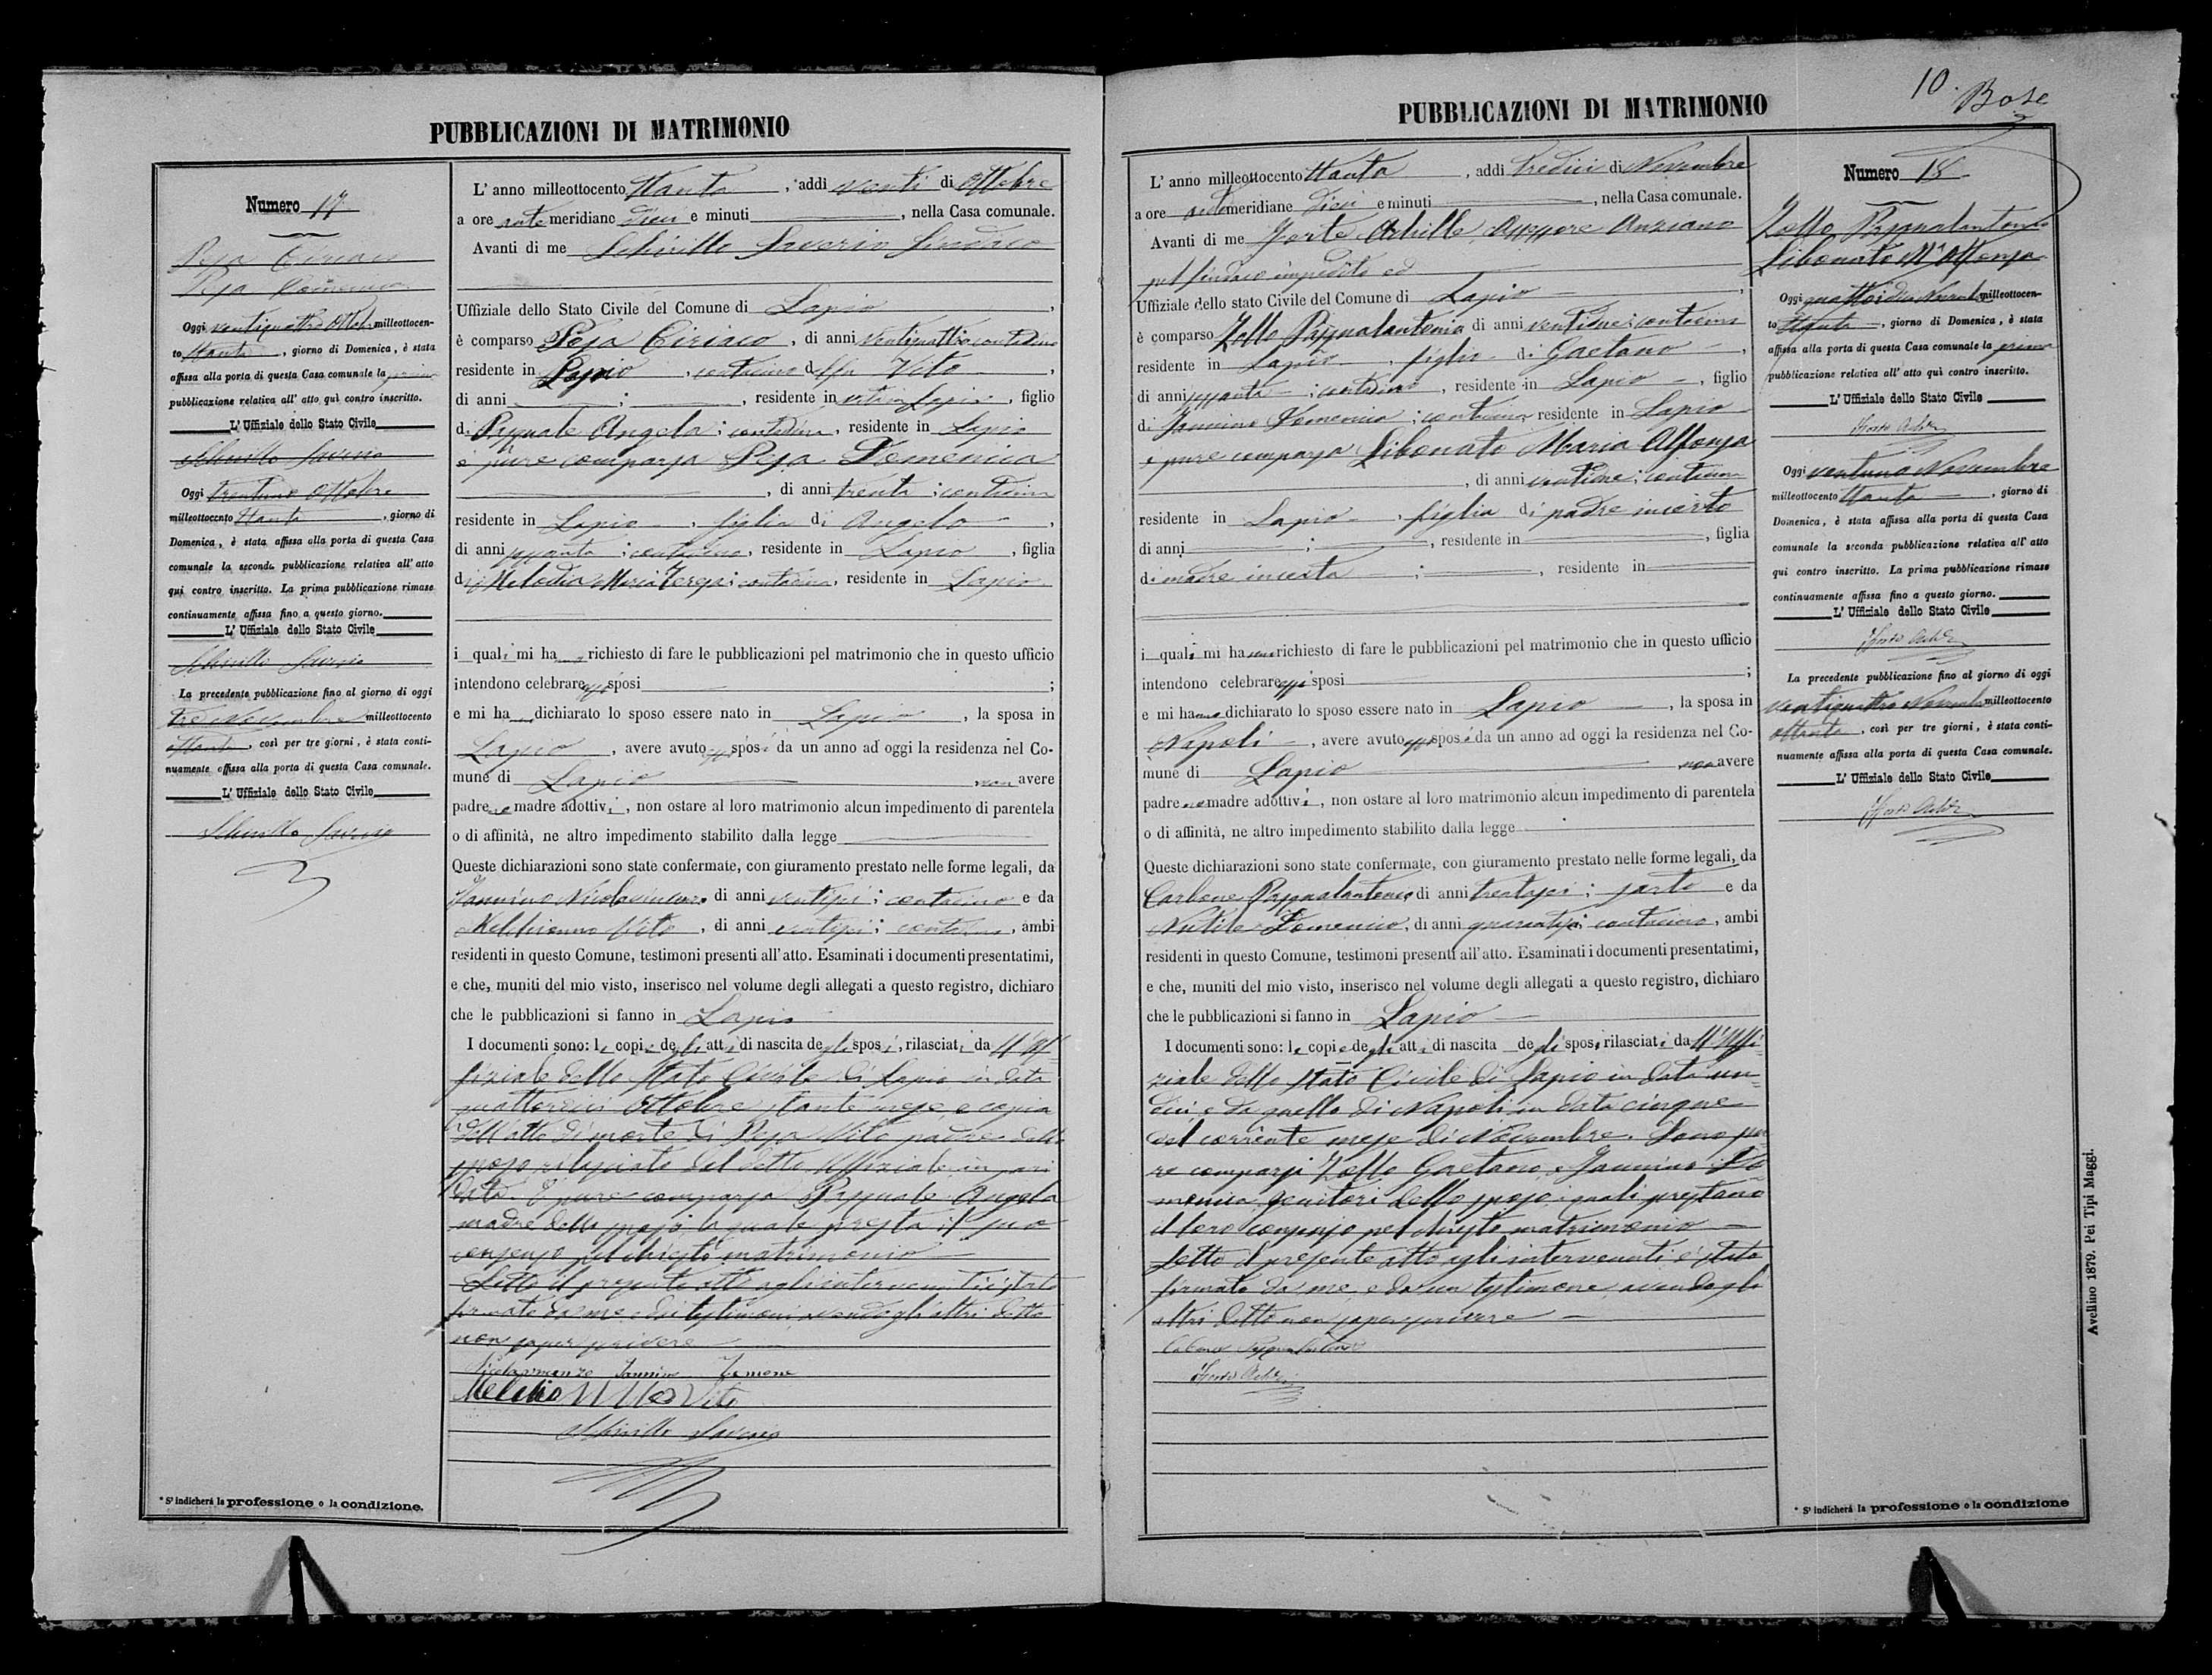 PUBBLICAZIONI DI MATRIMONIO
Numero 17
Pesa Ciriaco
Pesa Domenica
Oggi ventiquattro Ottobre milleottocen-
to ottanta, giorno di Domenica, è stata
affissa alla porta di questa Casa comunale la prima
pubblicazione relativa all' atto quì contro inscritto.
L' Uffiziale dello Stato Civile
Schirillo Saverio
Oggi trentuno Ottobre
milleottocento ottanta, giorno di
Domenica, è stata affissa alla porta di questa Casa
comunale la seconda pubblicazione relativa all' atto
quì contro inscritto. La prima pubblicazione rimase
continuamente affissa fino a questo giorno.
L' Uffiziale dello Stato Civile
Schirillo Saverio
La precedente pubblicazione fino al giorno di oggi
tre Novembre milleottocento
ottanta, così per tre giorni, è stata conti-
nuamente affissa alla porta di questa Casa comunale.
L' Uffiziale dello Stato Civile
Schirillo Saverio
* S' indicherà la professione o la condizione.
L' anno milleottocento ottanta, addì venti di Ottobre
a ore ante meridiane dieci e minuti, nella Casa comunale.
Avanti di me Schirillo Saverio Sindaco
Uffiziale dello Stato Civile del Comune di Lapio,
è comparso Pesa Ciriaco, di anni ventiquattro contadino
residente in Lapio, contadino del fu Vito,
di anni ; , residente in vita in Lapio, figlio
di Pasquale Angela; contadina, residente in Lapio
è pure comparsa Pesa Domenica
, di anni trenta; contadina
residente in Lapio, figlia di Angelo,
di anni sessanta; contadino, residente in Lapio, figlia
di Melodia Maria Teresa; contadina, residente in Lapio
i quali mi hanno richiesto di fare le pubblicazioni pel matrimonio che in questo ufficio
intendono celebrare essi sposi ;
e mi hanno dichiarato lo sposo essere nato in Lapio, la sposa in
Lapio, avere avuto essi sposi da un anno ad oggi la residenza nel Co-
mune di Lapio, non avere
padre ne madre adottivi, non ostare al loro matrimonio alcun impedimento di parentela
o di affinità, ne altro impedimento stabilito dalla legge
Queste dichiarazioni sono state confermate, con giuramento prestato nelle forme legali, da
Jannino di anni ventisei; contadino e da
Melchionno Vito, di anni ventisei; contadino, ambi
residenti in questo Comune, testimoni presenti all' atto. Esaminati i documenti presentatimi,
e che, muniti del mio visto, inserisco nel volume degli allegati a questo registro, dichiaro
che le pubblicazioni si fanno in Lapio
I documenti sono: le copie degli atti di nascita degli sposi, rilasciati dall' Uf-
fiziale dello Stato Civile di Lapio in data
quattordici Ottobre stante mese e copia
dell' atto di morte di Pesa Vito padre dello
sposo rilasciato dal detto Uffiziale in pari
data. È pure comparsa Pasquale Angela
madre dello sposo, la quale presta il suo
consenso pel chiesto matrimonio
Letto il presente atto agli intervenuti è stato
firmato da me e dai testimoni avendo gli altri detto
non saper scrivere
Jannino
Melchionno Vito
Schirillo Saverio
10. Bose
PUBBLICAZIONI DI MATRIMONIO
L' anno milleottocento ottanta, addì tredici di Novembre
a ore antemeridiane dieci e minuti, nella Casa comunale.
Avanti di me Forte Achille Assessore Anziano
pel sindaco impedito ed
Uffiziale dello stato Civile del Comune di Lapio,
è comparso Zollo Pasqualantonio di anni ventidue; contadino
residente in Lapio, figlio di Gaetano,
di anni sessanta; contadino, residente in Lapio, figlio
di Jannino Domenica; contadina residente in Lapio
è pure comparsa Libonato Maria Alfonsa
, di anni ventidue; contadina
residente in Lapio, figlia di padre incerto
di anni ; , residente in , figlia
di madre incerta ; , residente in
i quali mi hanno richiesto di fare le pubblicazioni pel matrimonio che in questo ufficio
intendono celebrare essi sposi ;
e mi hanno dichiarato lo sposo essere nato in Lapio, la sposa in
Napoli, avere avuto essi sposi da un anno ad oggi la residenza nel Co-
mune di Lapio non avere
padre ne madre adottivi, non ostare al loro matrimonio alcun impedimento di parentela
o di affinità, ne altro impedimento stabilito dalla legge
Queste dichiarazioni sono state confermate, con giuramento prestato nelle forme legali, da
Carbone Pasqualantonio di anni trentasei; sarto e da
Nutile Domenico, di anni quarantasei contadino, ambi
residenti in questo Comune, testimoni presenti all' atto. Esaminati i documenti presentatimi,
e che, muniti del mio visto, inserisco nel volume degli allegati a questo registro, dichiaro
che le pubblicazioni si fanno in Lapio
I documenti sono: le copie degli atti di nascita degli sposi rilasciati dall' Uffi-
ziale dello Stato Civile di Lapio in data un-
dici e da quello di Napoli in data cinque
del corrente mese di Novembre. Sono pu-
re comparsi Zollo Gaetano e Jannino Do-
menica genitori dello sposo i quali prestano
il loro consenso pel chiesto matrimonio
Letto il presente atto agli intervenuti è stato
firmato da me e da un testimone avendo gli
altri detto non saper scrivere
Carbone Pasqualantonio
Forte Achille
Numero 18
Zollo Pasqualantonio
Libonato Ma Alfonsa
Oggi quattordici Novembre milleottocen-
to ottanta, giorno di Domenica, è stata
affissa alla porta di questa Casa comunale la prima
pubblicazione relativa all' atto quì contro inscritto.
L' Uffiziale dello Stato Civile
Forte Achille
Oggi ventuno Novembre
milleottocento ottanta, giorno di
Domenica, è stata affissa alla porta di questa Casa
comunale la seconda pubblicazione relativa all' atto
qui contro inscritto. La prima pubblicazione rimase
continuamente affissa fino a questo giorno.
L' Uffiziale dello Stato Civile
Forte Achille
La precedente pubblicazione fino al giorno di oggi
ventiquattro Novembre milleottocento
ottanta, così per tre giorni, è stata conti-
nuamente affissa alla porta di questa Casa comunale.
L' Uffiziale dello Stato Civile
Forte Achille
* S' indicherà la professione o la condizione
Avellino 1879. Pei Tipi Maggi.